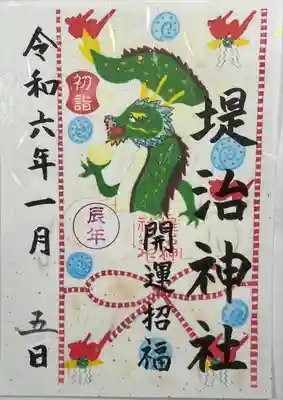 堤治神社
開運招福
初詣
辰年
令和六年一月
五日